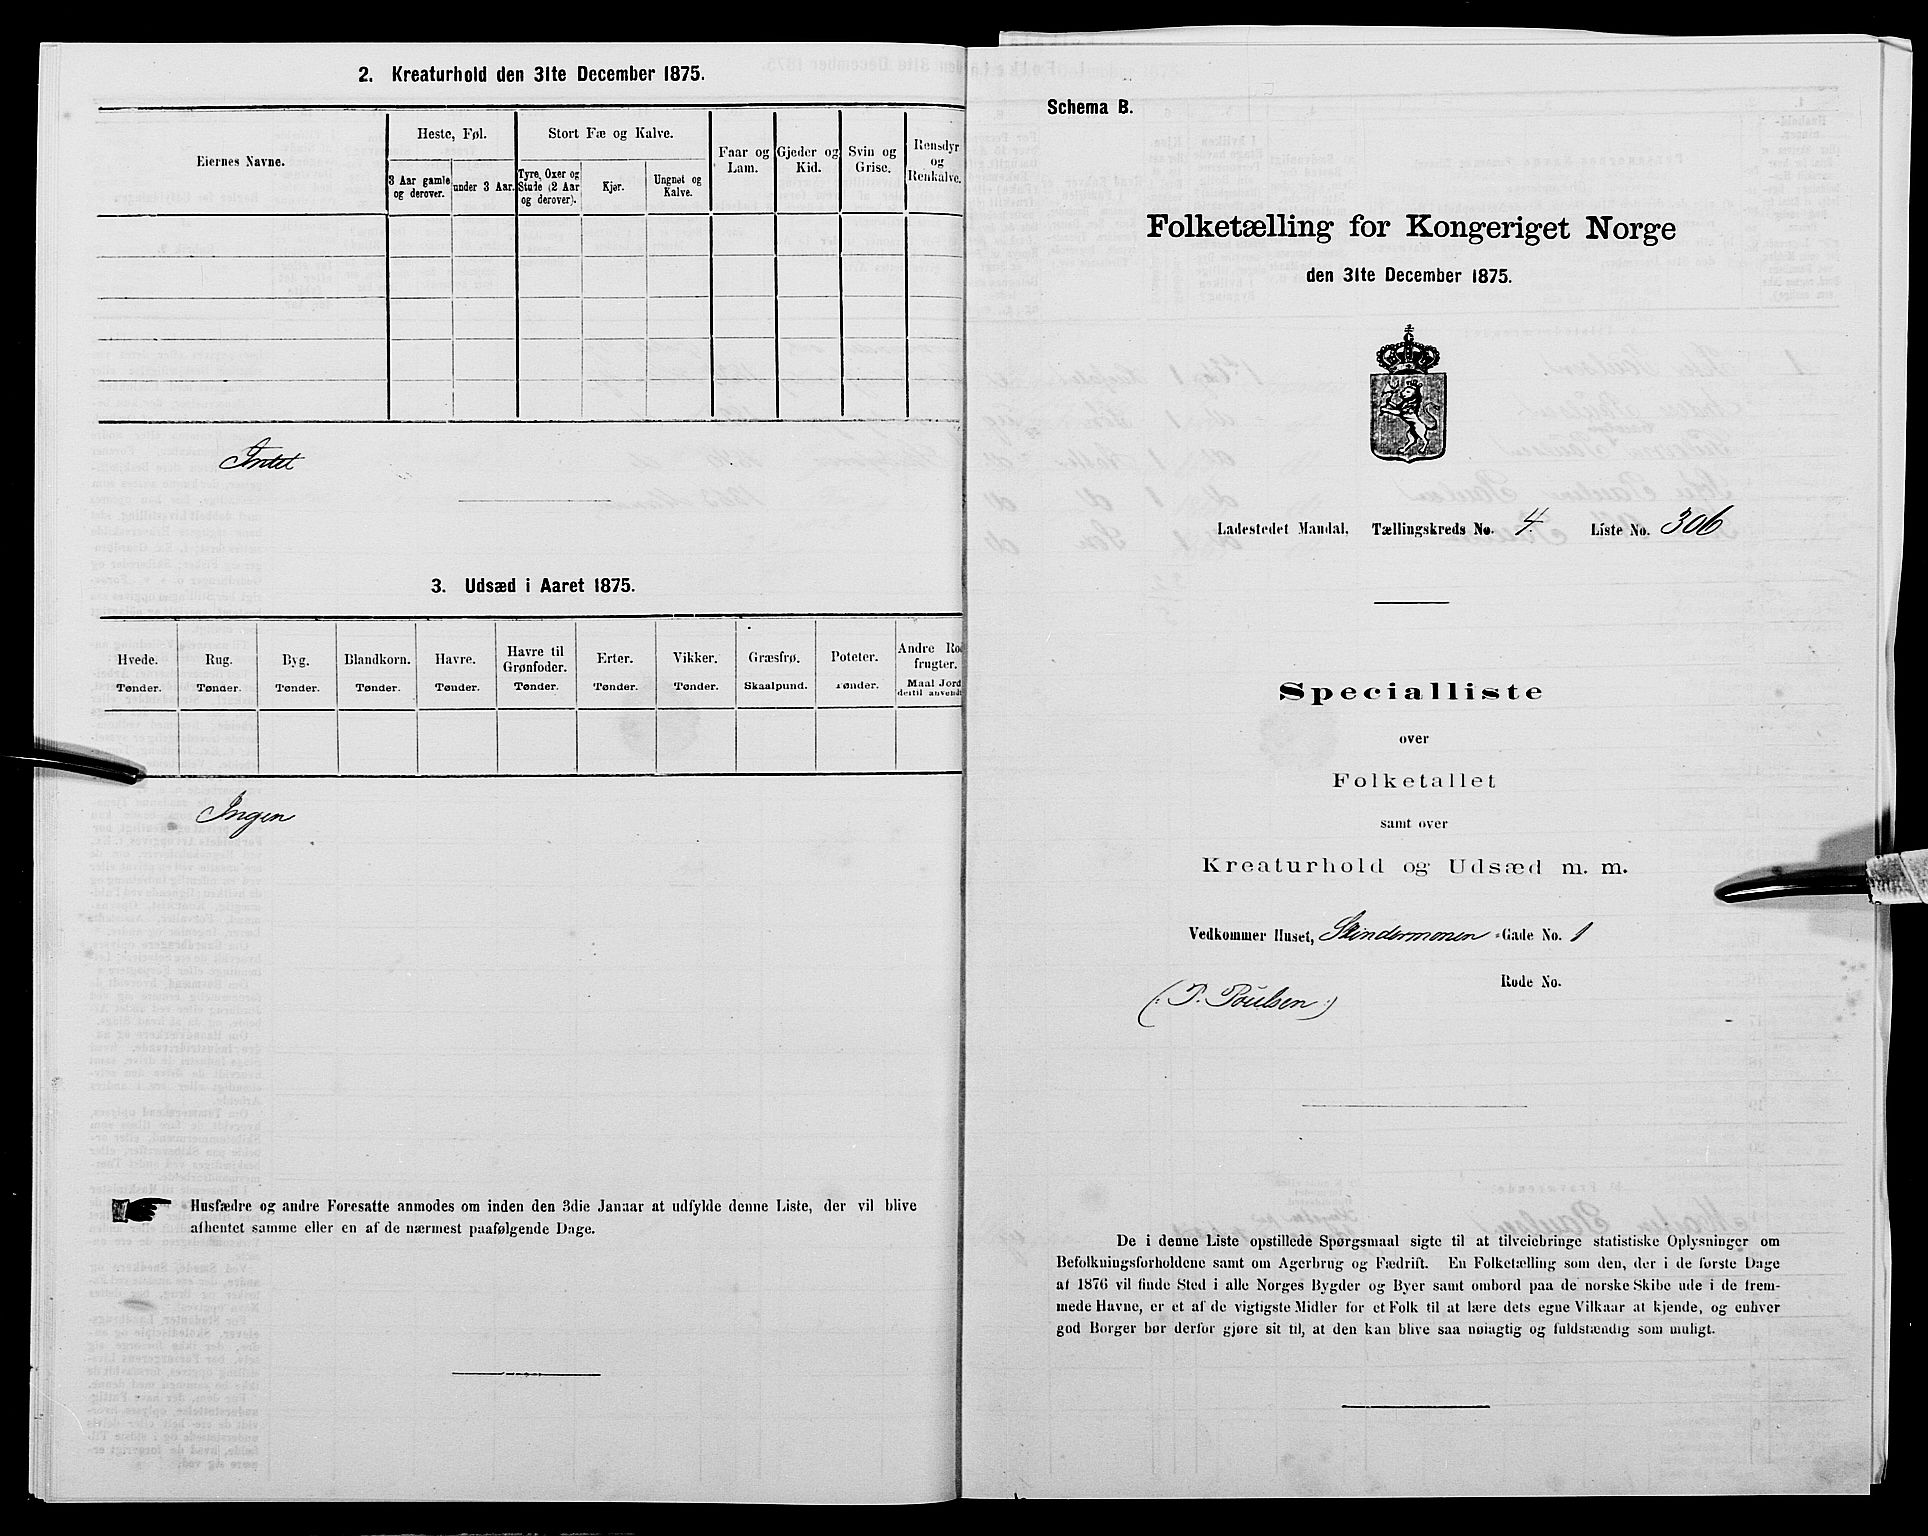 2. Kreaturhold den 31te December 1875.
Eiernes Navne.
Heste, Føl.
3 Aar gamle og derover.
under 3 Aar.
Stort Fæ og Kalve.
Tyre, Oxer og Stude (2 Aar og derover).
Kjør.
Ungnøt og Kalve.
Faar og Lam.
Gjeder og Kid.
Svin og Grise.
Rensdyr og Renkalve.
Intet
3. Udsæd i Aaret 1875.
Hvede.
Tønder.
Rug.
Tønder.
Byg.
Tønder.
Blandkorn.
Tønder.
Havre.
Tønder.
Havre til Grønfoder.
Tønder.
Erter.
Tønder.
Vikker.
Tønder.
Græsfrø.
Skaalpund.
Poteter.
Tønder.
Andre Ro
frugter.
Maal Jord
dertil anvendt
Ingen
Husfædre og andre Foresatte anmodes om inden den 3die Januar at udfylde denne Liste, der vil blive
afhentet samme eller en af de nærmest paafølgende Dage.
Schema B.
Folketælling for Kongeriget Norge
den 31te December 1875.
Ladestedet Mandal. Tællingskreds No. 4. Liste No. 306
Specialliste
over
Folketallet
samt over
Kreaturhold og Udsæd m. m.
Vedkommer Huset, Skindermonen -Gade No. 1
Rode No.
(: P. Poulsen :)
De i denne Liste opstillede Spørgsmaal sigte til at tilveiebringe statistiske Oplysninger om
Befolkningsforholdene samt om Agerbrug og Fædrift. En Folketælling som den, der i de første Dage
af 1876 vil finde Sted i alle Norges Bygder og Byer samt ombord paa de norske Skibe ude i de frem-
mede Havne, er et af de vigtigste Midler for et Folk til at lære dets egne Vilkaar at kjende, og enhver
god Borger bør derfor gjøre sit til, at den kan blive saa nøiagtig og fuldstændig som muligt.